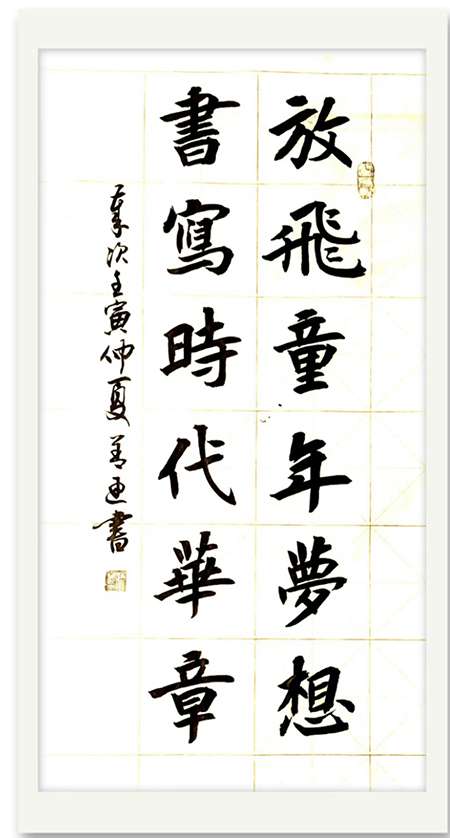 放飛童年夢想
書寫時代華章
歲次壬寅仲夏書